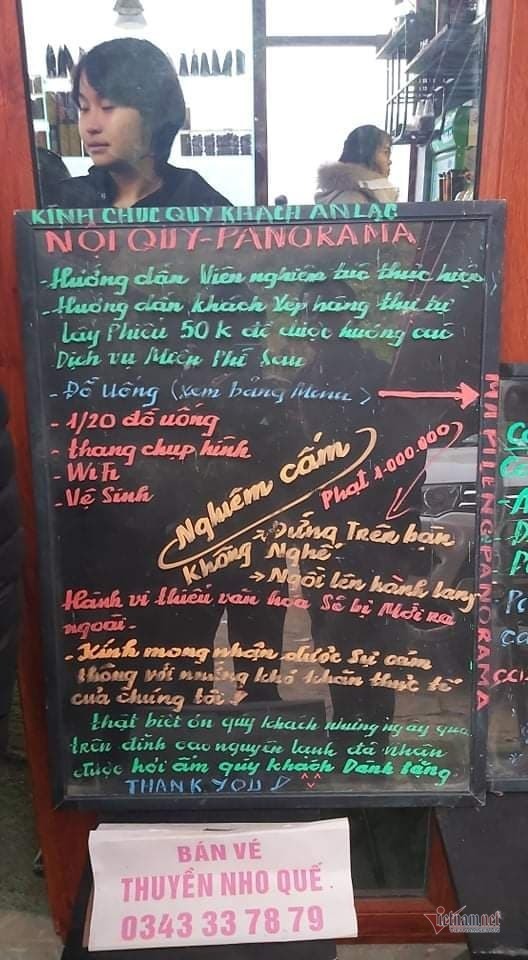 KÍNH CHÚC QUÝ KHÁCH AN LẠC
NỘI QUY-PANORAMA
- Hướng dẫn Viên nghiêm túc thực hiện
- Hướng dẫn khách xếp hàng thứ tự
Lấy Phiếu 50K để được hưởng các
Dịch vụ Miễn Phí Sau
- Đồ Uống (Xem bảng Menu)
- 1/20 đồ uống
- thang chụp hình
- WiFi
- Vệ Sinh
Nghiêm cấm
Phạt 1.000.000
Không
Đứng Trên bàn
Nghế
→ Ngồi lên hành lang
Hành vi thiếu văn hóa Sẽ bị Mời ra
ngoài.
- Kính mong nhận được Sự cảm
thông với những khó khăn thực tế
của chúng tôi!
thật biết ơn quý khách những ngày qua
trên đỉnh cao nguyên lạnh đã nhận
được hơi ấm quý khách Dành tặng
THANK YOU
MAPILENGPANORAMA
BÁN VÉ
THUYỀN NHO QUẾ
0343 33 78 79
vietnam.net